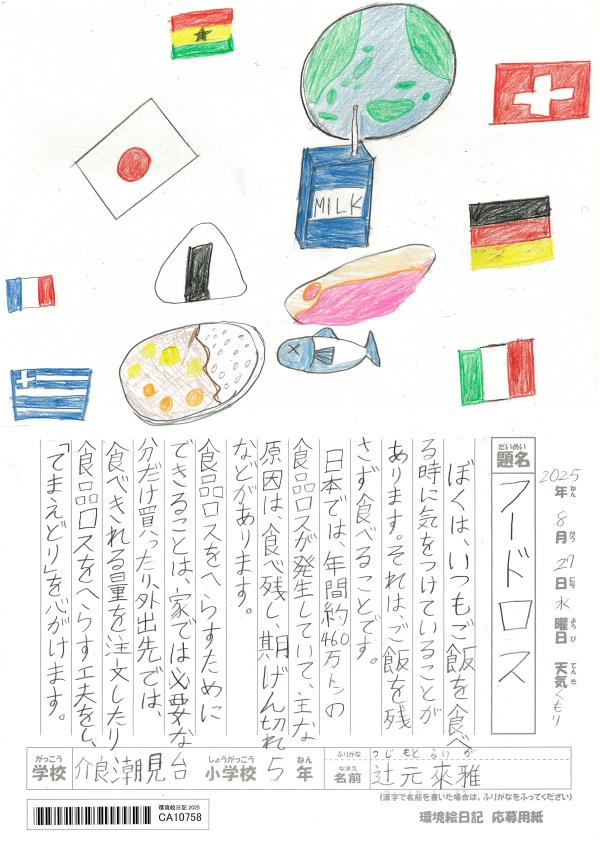 MILK
2025年 8月 27日 水曜日 天気 くもり
ねん がつ にち ようび てんき
だいめい
題名
フードロス
ぼくは、いつもご飯を食べ
る時に気をつけていることが
あります。それは、ご飯を残
さず食べることです。
日本では、年間約460万トンの
食品ロスが発生していて、主な
原因は、食べ残し、期げん切れ
などがあります。
食品ロスをへらすために
できることは、家では必要な
分だけ買ったり、外出先では、
食べきれる量を注文したり
食品ロスをへらす工夫をし、
「てまえどり」を心がけます。
がっこう
学校
介良潮見台
しょうがっこう
小学校
5
ねん
年
ふりがな
つじ もと らい が
なまえ
名前
辻元來雅
(漢字で名前を書いた場合は、ふりがなをふってください)
環境絵日記 2025
CA10758
環境絵日記 応募用紙